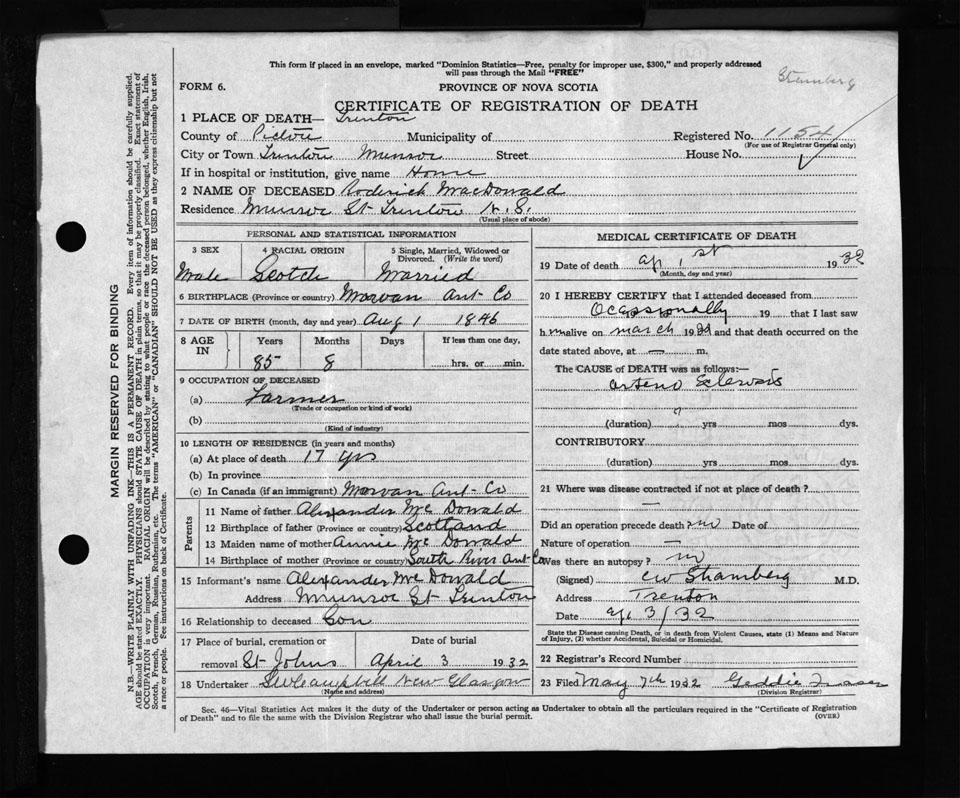 This form if placed in an envelope, marked "Dominion Statistics—Free, penalty for improper use, $300," and properly addressed
will pass through the Mail "FREE"
Stamberg
FORM 6. PROVINCE OF NOVA SCOTIA
CERTIFICATE OF REGISTRATION OF DEATH
1 PLACE OF DEATH— Trenton
County of Pictou Municipality of Registered No. 1154
(For use of Registrar General only)
City or Town Trenton Munroe Street House No.
If in hospital or institution, give name Home
2 NAME OF DECEASED Roderick MacDonald
Residence Munroe St Trenton N.S.
(Usual place of abode)
PERSONAL AND STATISTICAL INFORMATION
3 SEX 4 RACIAL ORIGIN 5 Single, Married, Widowed or
Divorced. (Write the word)
Male Scotch Married
6 BIRTHPLACE (Province or country) Morvan Ant- Co
7 DATE OF BIRTH (month, day and year) Aug 1 1846
8 AGE IN Years Months Days If less than one day,
85 8 hrs. or min.
9 OCCUPATION OF DECEASED
(a) Farmer
(Trade or occupation or kind of work)
(b)
(Kind of industry)
10 LENGTH OF RESIDENCE (in years and months)
(a) At place of death 17 yrs
(b) In province
(c) In Canada (if an immigrant) Morvan Ant- Co
Parents
11 Name of father Alexander McDonald
12 Birthplace of father (Province or country) Scotland
13 Maiden name of mother Annie McDonald
14 Birthplace of mother (Province or country) South River Ant Co
15 Informant's name Alexander McDonald
Address Munroe St Trenton
16 Relationship to deceased Son
17 Place of burial, cremation or Date of burial
removal St Johns April 3 1932
18 Undertaker SW Campbell New Glasgow
(Name and address)
MEDICAL CERTIFICATE OF DEATH
19 Date of death Ap 1st 1932
(Month, day and year)
20 I HEREBY CERTIFY that I attended deceased from
Ocassionally 19 that I last saw
h m alive on march 1932 and that death occurred on the
date stated above, at — m.
The CAUSE OF DEATH was as follows:—
arterio Sclerosis
(duration) yrs mos dys.
CONTRIBUTORY
(duration) yrs mos dys.
21 Where was disease contracted if not at place of death?
—
Did an operation precede death? no Date of
Nature of operation —
Was there an autopsy? no
(Signed) CW Stramberg M.D.
Address Trenton
Date Ap 3/32
State the Disease causing Death, or in death from Violent Causes, state (1) Means and Nature
of Injury, (2) whether Accidental, Suicidal or Homicidal.
22 Registrar's Record Number
23 Filed May 7th 1932 Geddie Fraser
(Division Registrar)
Sec. 46—Vital Statistics Act makes it the duty of the Undertaker or person acting as Undertaker to obtain all the particulars required in the "Certificate of Registration
of Death" and to file the same with the Division Registrar who shall issue the burial permit.
(OVER)
MARGIN RESERVED FOR BINDING
N.B.—WRITE PLAINLY WITH UNFADING INK—THIS IS A PERMANENT RECORD. Every item of information should be carefully supplied.
AGE should be stated EXACTLY. PHYSICIANS should STATE CAUSE OF DEATH in plain terms, so that it may be properly classified. Exact statement of
OCCUPATION is very important. RACIAL ORIGIN will be described by stating to what people or race the deceased person belonged, whether English, Irish,
Scotch, French, German, Russian, Ruthenian, etc. The terms "AMERICAN" or "CANADIAN" SHOULD NOT BE USED as they express citizenship but not
a race or people. See instructions on back of Certificate.